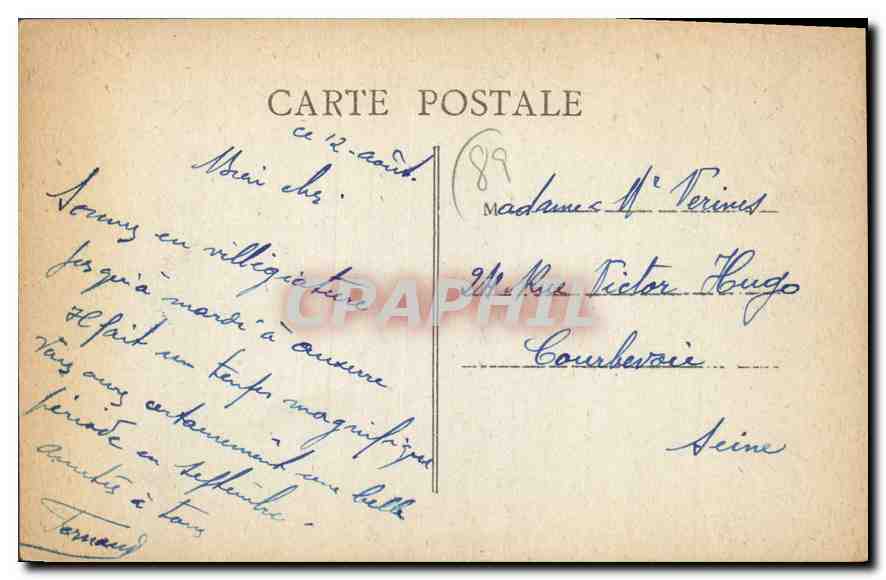 CARTE POSTALE
ce 12 août
Bien cher
Sommes en villégiature
jusqu'à mardi à auxerre
Il fait un temps magnifique
Vous aurez certainement une belle
période en septembre.
amitiés à tous
Fernand
89
Madame & Mr Verines
Rue Victor Hugo
Courbevoie
Seine
GRAPHIL